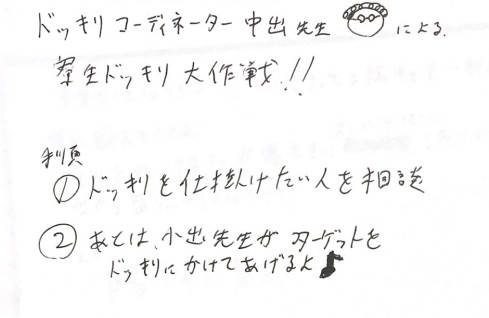 ドッキリ コーディネーター 中出 先生 による
寮生ドッキリ 大作戦!!
手順
① ドッキリを仕掛けたい人を相談
② あとは、小出先生が ターゲットを
ドッキリにかけてあげるよ♪